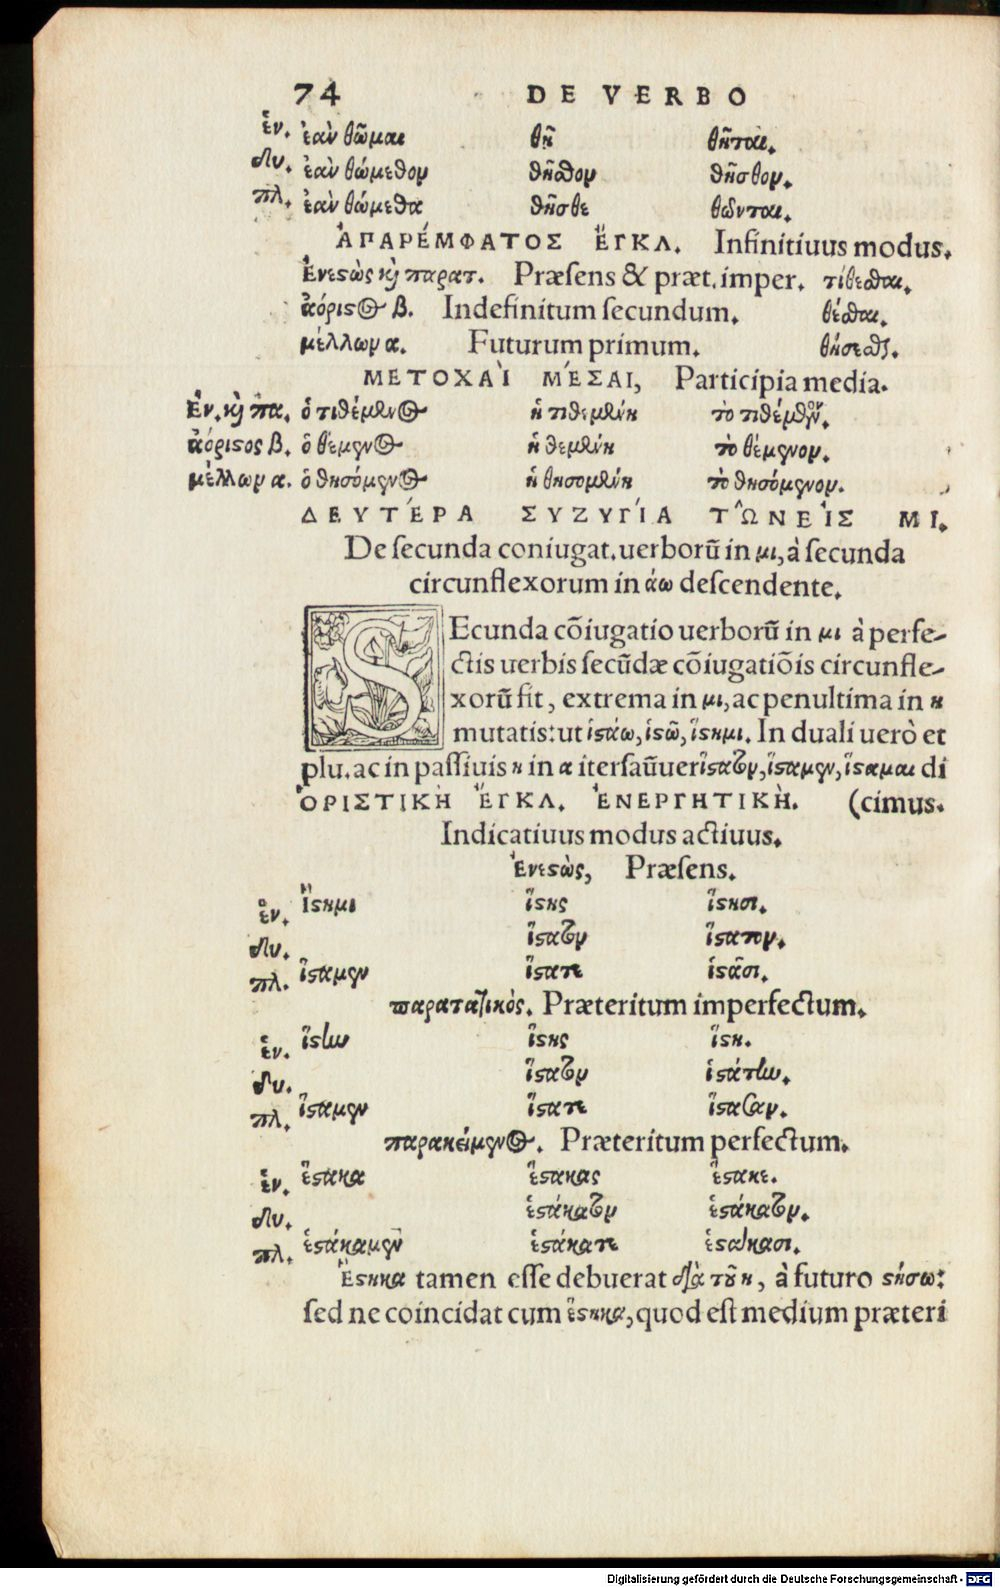 74 DE VERBO
ἑν. ἐὰν θῶμαι θῇ θῆται.
δυ. ἐὰν θώμεθον θῆσθον θῆσθον.
πλ. ἐὰν θώμεθα θῆσθε θῶνται.
ἈΠΑΡΈΜΦΑΤΟΣ ἜΓΚΛ. Infinitiuus modus.
Ἐνεϛὼς κ̀ παρατ. Præſens & præt. imper. τίθεσθαι.
ἀόριϛος β. Indefinitum ſecundum. θέσθαι.
μέλλων α. Futurum primum. θήσεσθαι.
ΜΕΤΟΧΑῚ ΜΈΣΑΙ, Participia media.
Ἐν. κ̀ πα. ὁ τιθέμενος ἡ τιθεμένη τὸ τιθέμενον.
ἀόριϛος β. ὁ θέμενος ἡ θεμένη τὸ θέμενον.
μέλλων α. ὁ θησόμενος ἡ θησομένη τὸ θησόμενον.
ΔΕΥΤΈΡΑ ΣΥΖΥΓΊΑ ΤῶΝ ΕἸΣ ΜΙ.
De ſecunda coniugat. uerborũ in μι, à ſecunda
circunflexorum in άω deſcendente.
SEcunda cõiugatio uerborũ in μι à perfe-
ctis uerbis ſecũdæ cõiugatiõis circunfle-
xorũ fit, extrema in μι, ac penultima in η
mutatis: ut ἱϛάω, ἱϛῶ, ἵϛημι. In duali uerò et
plu. ac in paſſiuis η in α iterſaũuer ἵϛατον, ἵϛαμεν, ἵϛαμαι di
ὉΡΙΣΤΙΚῊ ἜΓΚΛ. ἘΝΕΡΓΗΤΙΚῊ. (cimus.
Indicatiuus modus actiuus.
Ἐνεϛὼς, Præſens.
ἑν. Ἵϛημι ἵϛης ἵϛησι.
δυ. ἵϛατον ἵϛατον.
πλ. ἵϛαμεν ἵϛατε ἱϛᾶσι.
παρατατικός. Præteritum imperfectum.
ἑν. ἵϛην ἵϛης ἵϛη.
δυ. ἵϛατον ἱϛάτην.
πλ. ἵϛαμεν ἵϛατε ἵϛασαν.
παρακείμενος. Præteritum perfectum.
ἑν. ἕϛακα ἕϛακας ἕϛακε.
δυ. ἑϛάκατον ἑϛάκατον.
πλ. ἑϛάκαμεν ἑϛάκατε ἑϛάκασι.
Ἕϛηκα tamen eſſe debuerat διὰ τοῦ η, à futuro ϛήσω:
ſed ne coincidat cum ἕϛηκα, quod eſt medium præteri
Digitalisierung gefördert durch die Deutsche Forschungsgemeinschaft - DFG